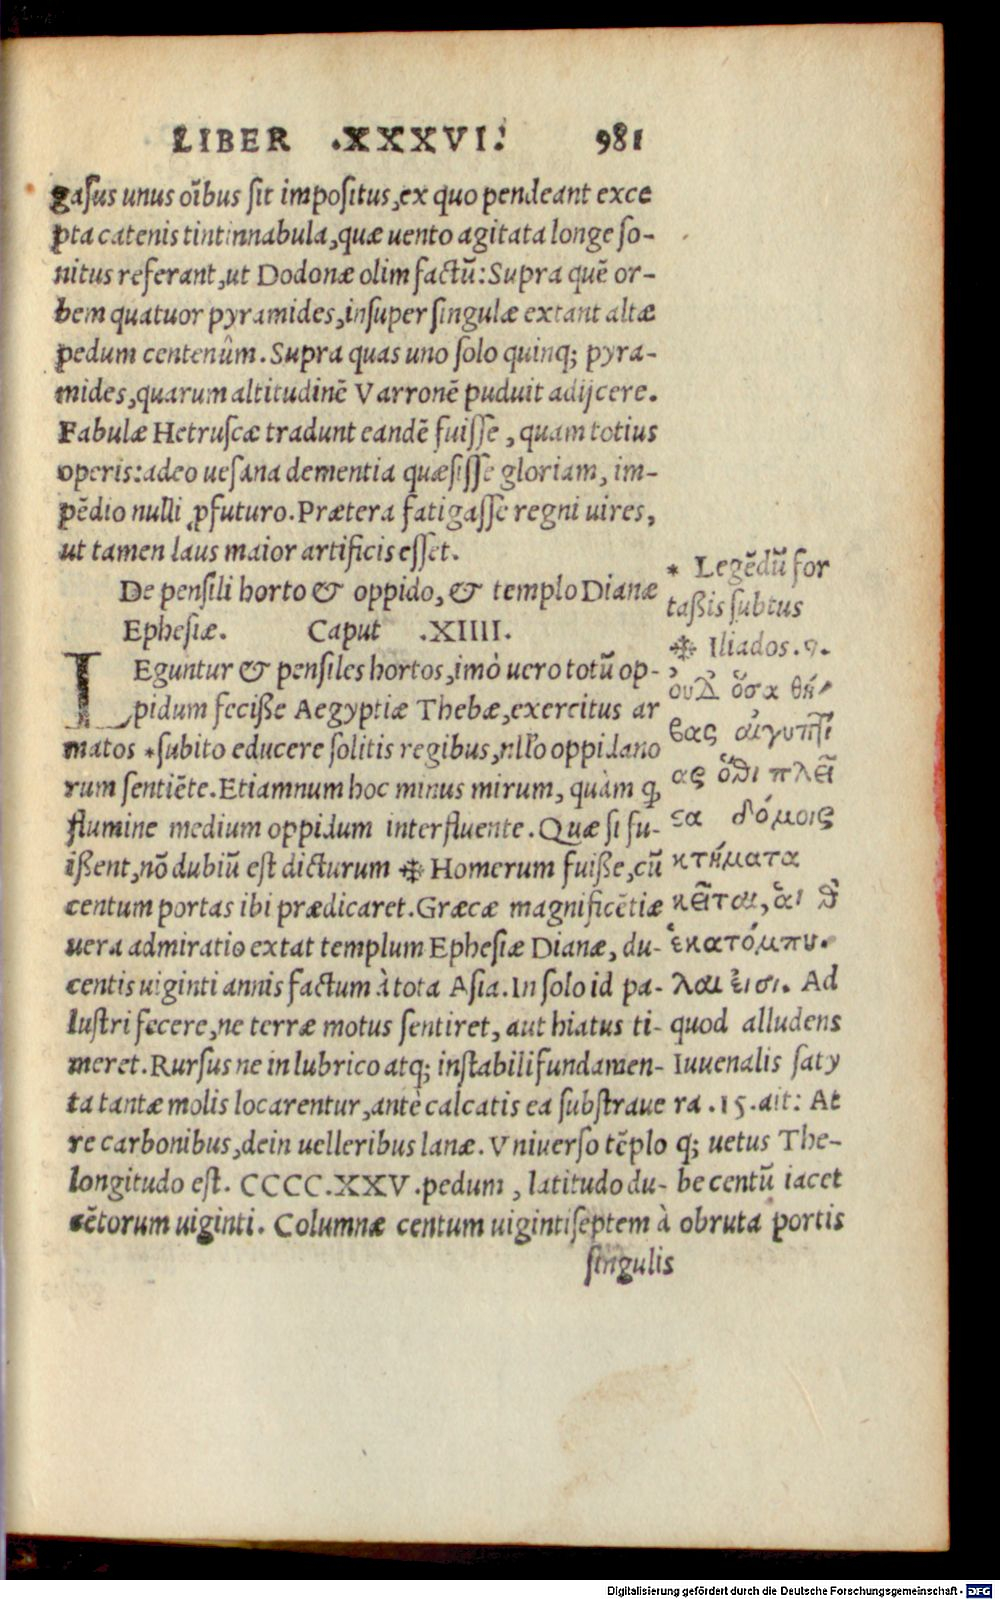 LIBER .XXXVI. 981
gasus unus oĩbus sit impositus, ex quo pendeant exce
pta catenis tintinnabula, quæ uento agitata longe so-
nitus referant, ut Dodonæ olim factũ: Supra quẽ or-
bem quatuor pyramides, insuper singulæ extant altæ
pedum centenûm. Supra quas uno solo quinq; pyra-
mides, quarum altitudinẽ Varronẽ puduit adijcere.
Fabulæ Hetruscæ tradunt eandẽ fuisse, quam totius
operis: adeo uesana dementia quæsisse gloriam, im-
pẽdio nulli ꝓfuturo. Prætera fatigasse regni uires,
ut tamen laus maior artificis esset.
De pensili horto & oppido, & templo Dianæ
Ephesiæ. Caput .XIIII.
LEguntur & pensiles hortos, imò uero totũ op-
pidum feciße Aegyptiæ Thebæ, exercitus ar
matos *subito educere solitis regibus, nłło oppidano
rum sentiẽte. Etiamnum hoc minus mirum, quàm ꝙ
flumine medium oppidum interfluente. Quæ si fu-
ißent, nõ dubiũ est dicturum ⁜ Homerum fuiße, cũ
centum portas ibi prædicaret. Græcæ magnificẽtiæ
uera admiratio extat templum Ephesiæ Dianæ, du-
centis uiginti annis factum à tota Asia. In solo id pa-
lustri fecere, ne terræ motus sentiret, aut hiatus ti-
meret. Rursus ne in lubrico atq; instabili fundamen-
ta tantæ molis locarentur, antè calcatis ea substraue
re carbonibus, dein uelleribus lanæ. Vniuerso tẽplo
longitudo est. CCCC.XXV. pedum, latitudo du-
cẽtorum uiginti. Columnæ centum uigintiseptem à
singulis
* Legẽdũ for
taßis subtus
⁜ Iliados. 9.
οὐδ᾽ ὅσα θή-
βας αἰγυπτί
ας ὅθι πλεῖ
ςα δόμοις
κτήματα
κεῖται, αἵ θ᾽
ἑκατόμπυ-
λαι εἰσι. Ad
quod alludens
Iuuenalis saty
ra .15. ait: At
q; uetus The-
be centũ iacet
obruta portis
Digitalisierung gefördert durch die Deutsche Forschungsgemeinschaft - DFG